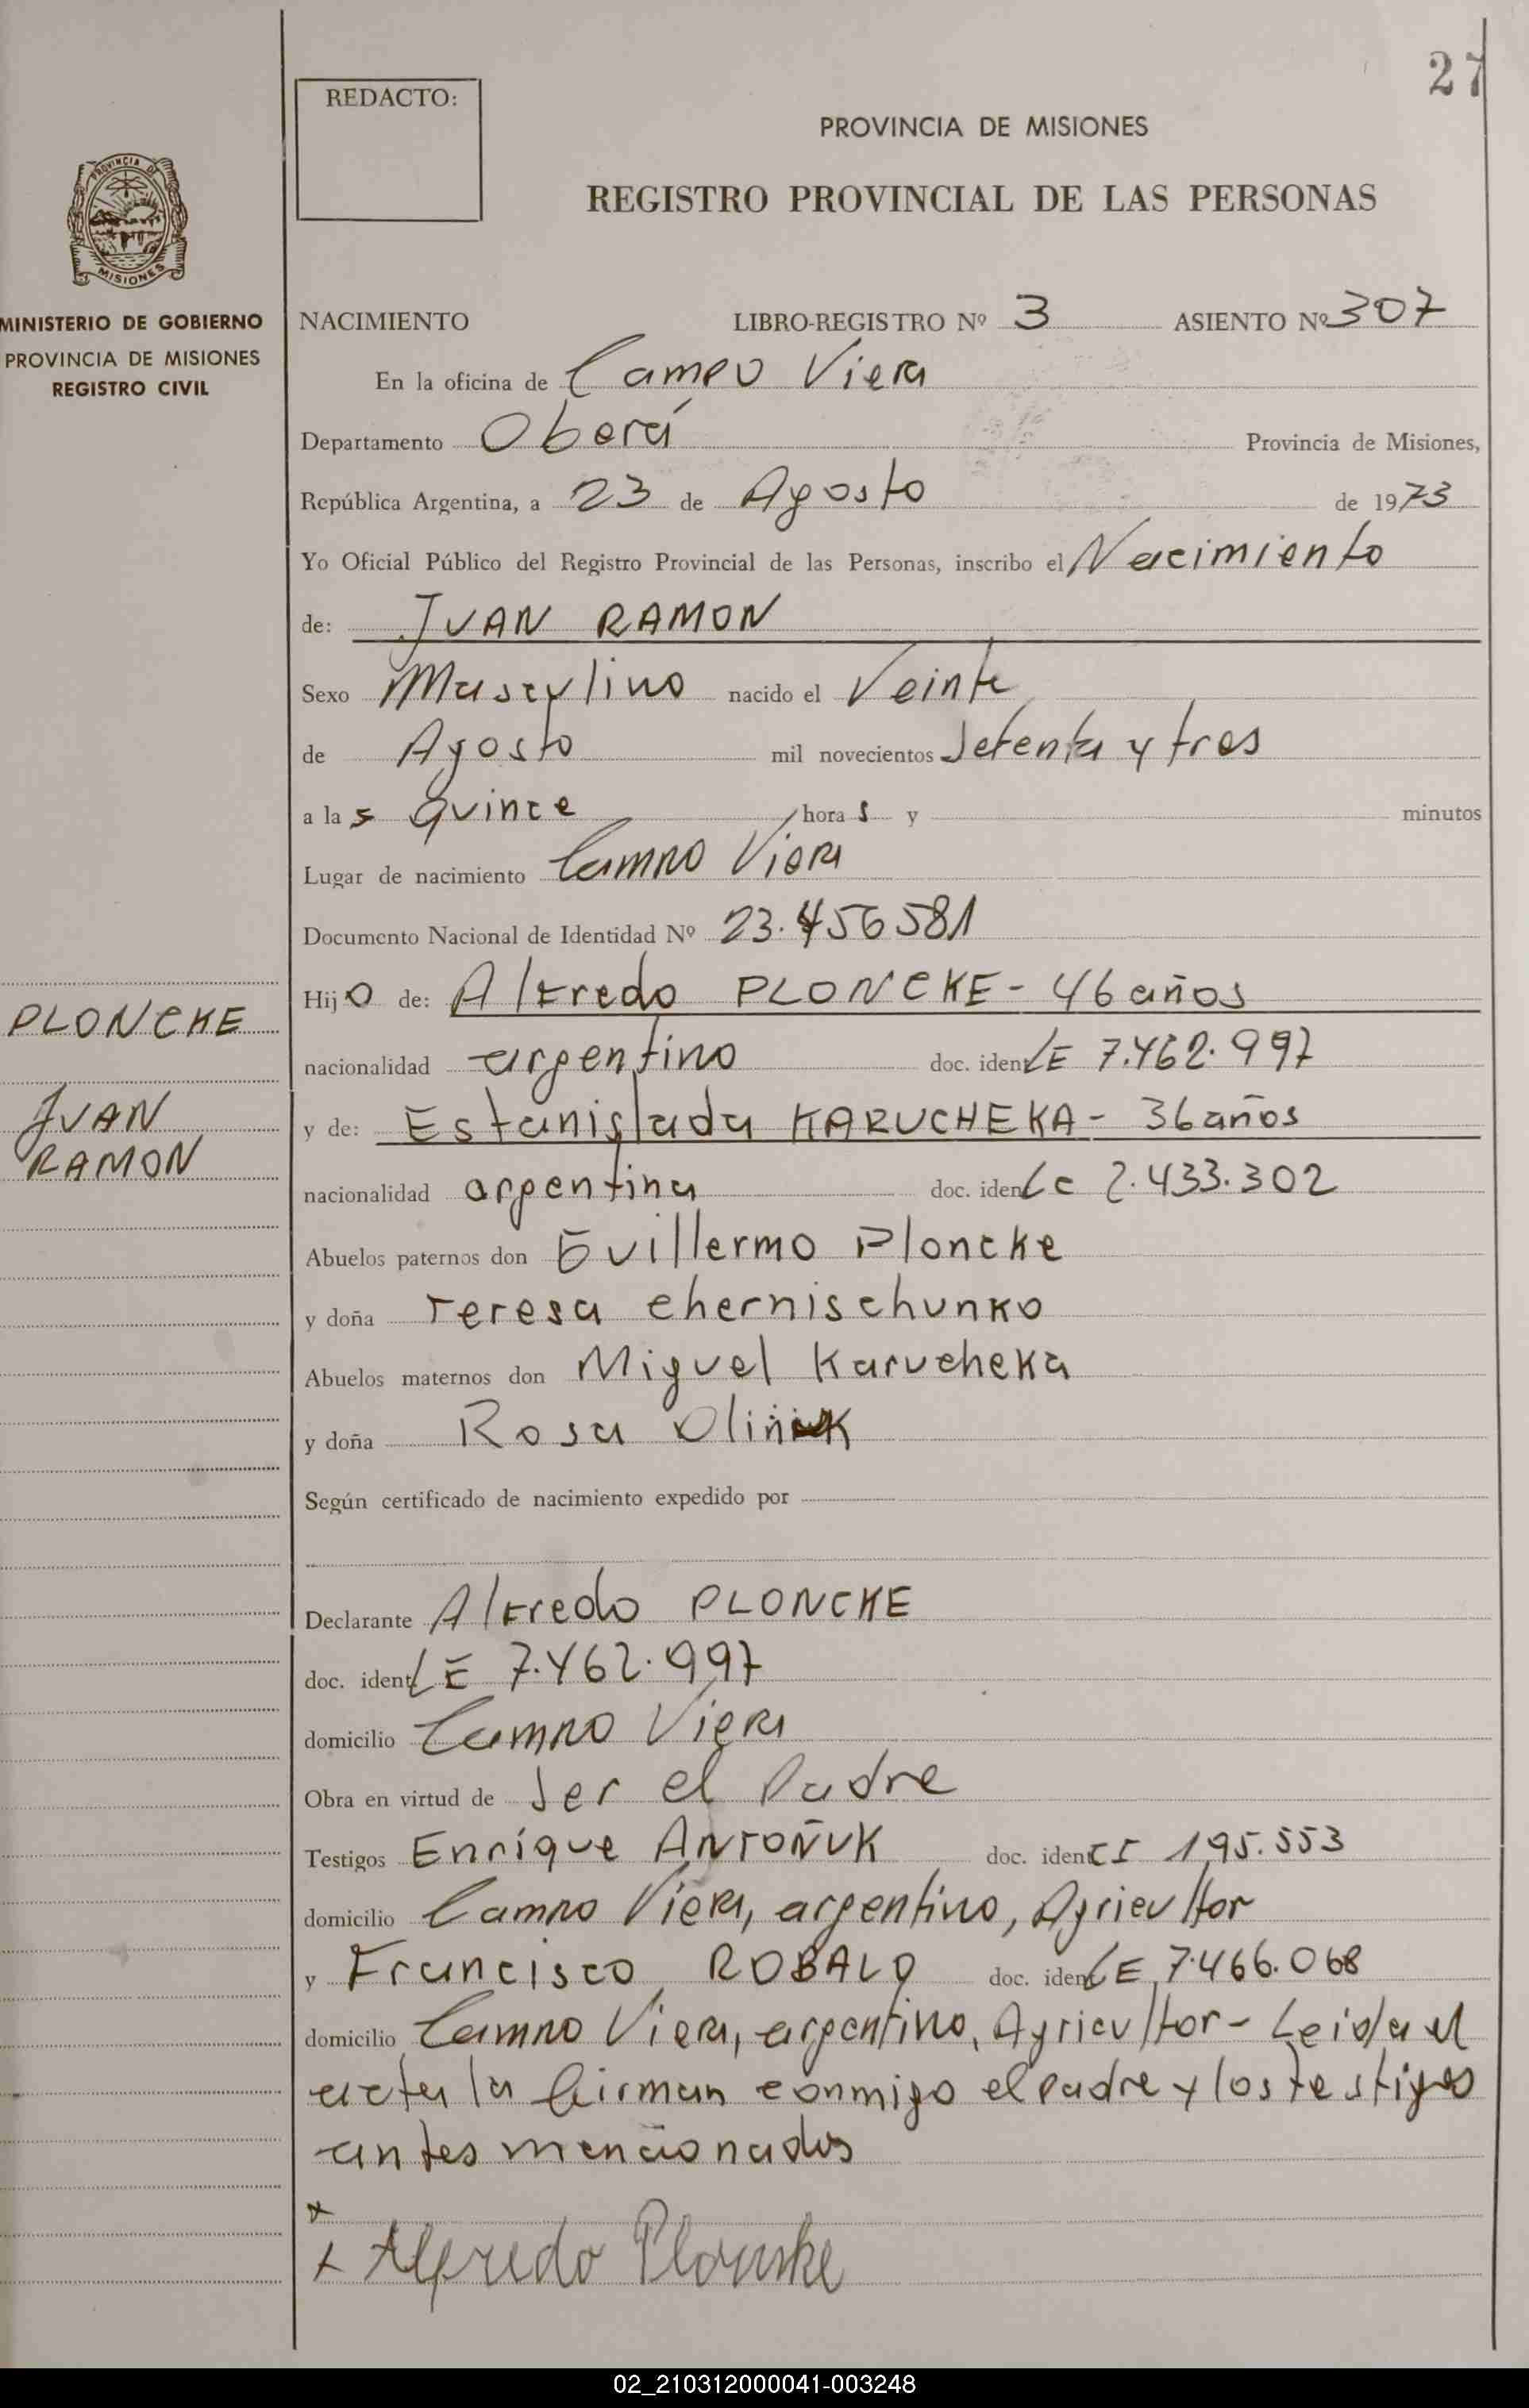 27
REDACTO:
PROVINCIA DE MISIONES
REGISTRO PROVINCIAL DE LAS PERSONAS
PROVINCIA DE
MISIONES
MINISTERIO DE GOBIERNO
PROVINCIA DE MISIONES
REGISTRO CIVIL
NACIMIENTO LIBRO-REGISTRO Nº 3 ASIENTO Nº 307
En la oficina de Campo Viera
Departamento Oberá Provincia de Misiones,
República Argentina, a 23 de Agosto de 1973
Yo Oficial Público del Registro Provincial de las Personas, inscribo el Nacimiento
de: JUAN RAMON
Sexo Masculino nacido el Veinte
de Agosto mil novecientos setenta y tres
a las quince horas y minutos
Lugar de nacimiento Campo Viera
Documento Nacional de Identidad Nº 23.456581
Hijo de: Alfredo PLONCKE - 46 años
PLONCKE
nacionalidad argentino doc. ident LE 7.462.997
JUAN
y de: Estanislada KARUCHEKA - 36 años
RAMON
nacionalidad argentina doc. iden LC 2.433.302
Abuelos paternos don Guillermo Ploncke
y doña Teresa Chernischunko
Abuelos maternos don Miguel Karucheka
y doña Rosa
Según certificado de nacimiento expedido por
Declarante Alfredo PLONCKE
doc. ident LE 7.462.997
domicilio Campo Viera
Obra en virtud de Ser el Padre
Testigos Enrique ANTOÑUK doc. iden CI 195.553
domicilio Campo Viera, argentino, Agricultor
y Francisco ROBALO doc. iden LE 7.466.068
domicilio Campo Viera, argentino, Agricultor - Leida el
acta la firman conmigo el padre y los testigos
antes mencionados
x
x Alfredo Plonske
02_210312000041-003248